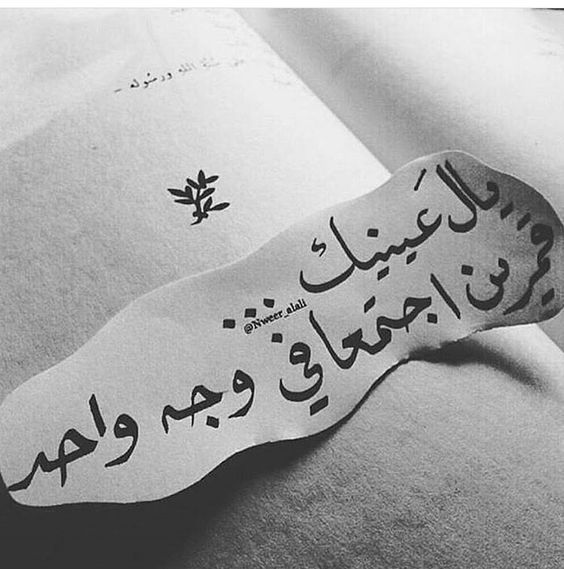 الله ورسوله -
يال عَينيك ...
قمرين اجتمعا في وجه واحد
@Nweer_alali